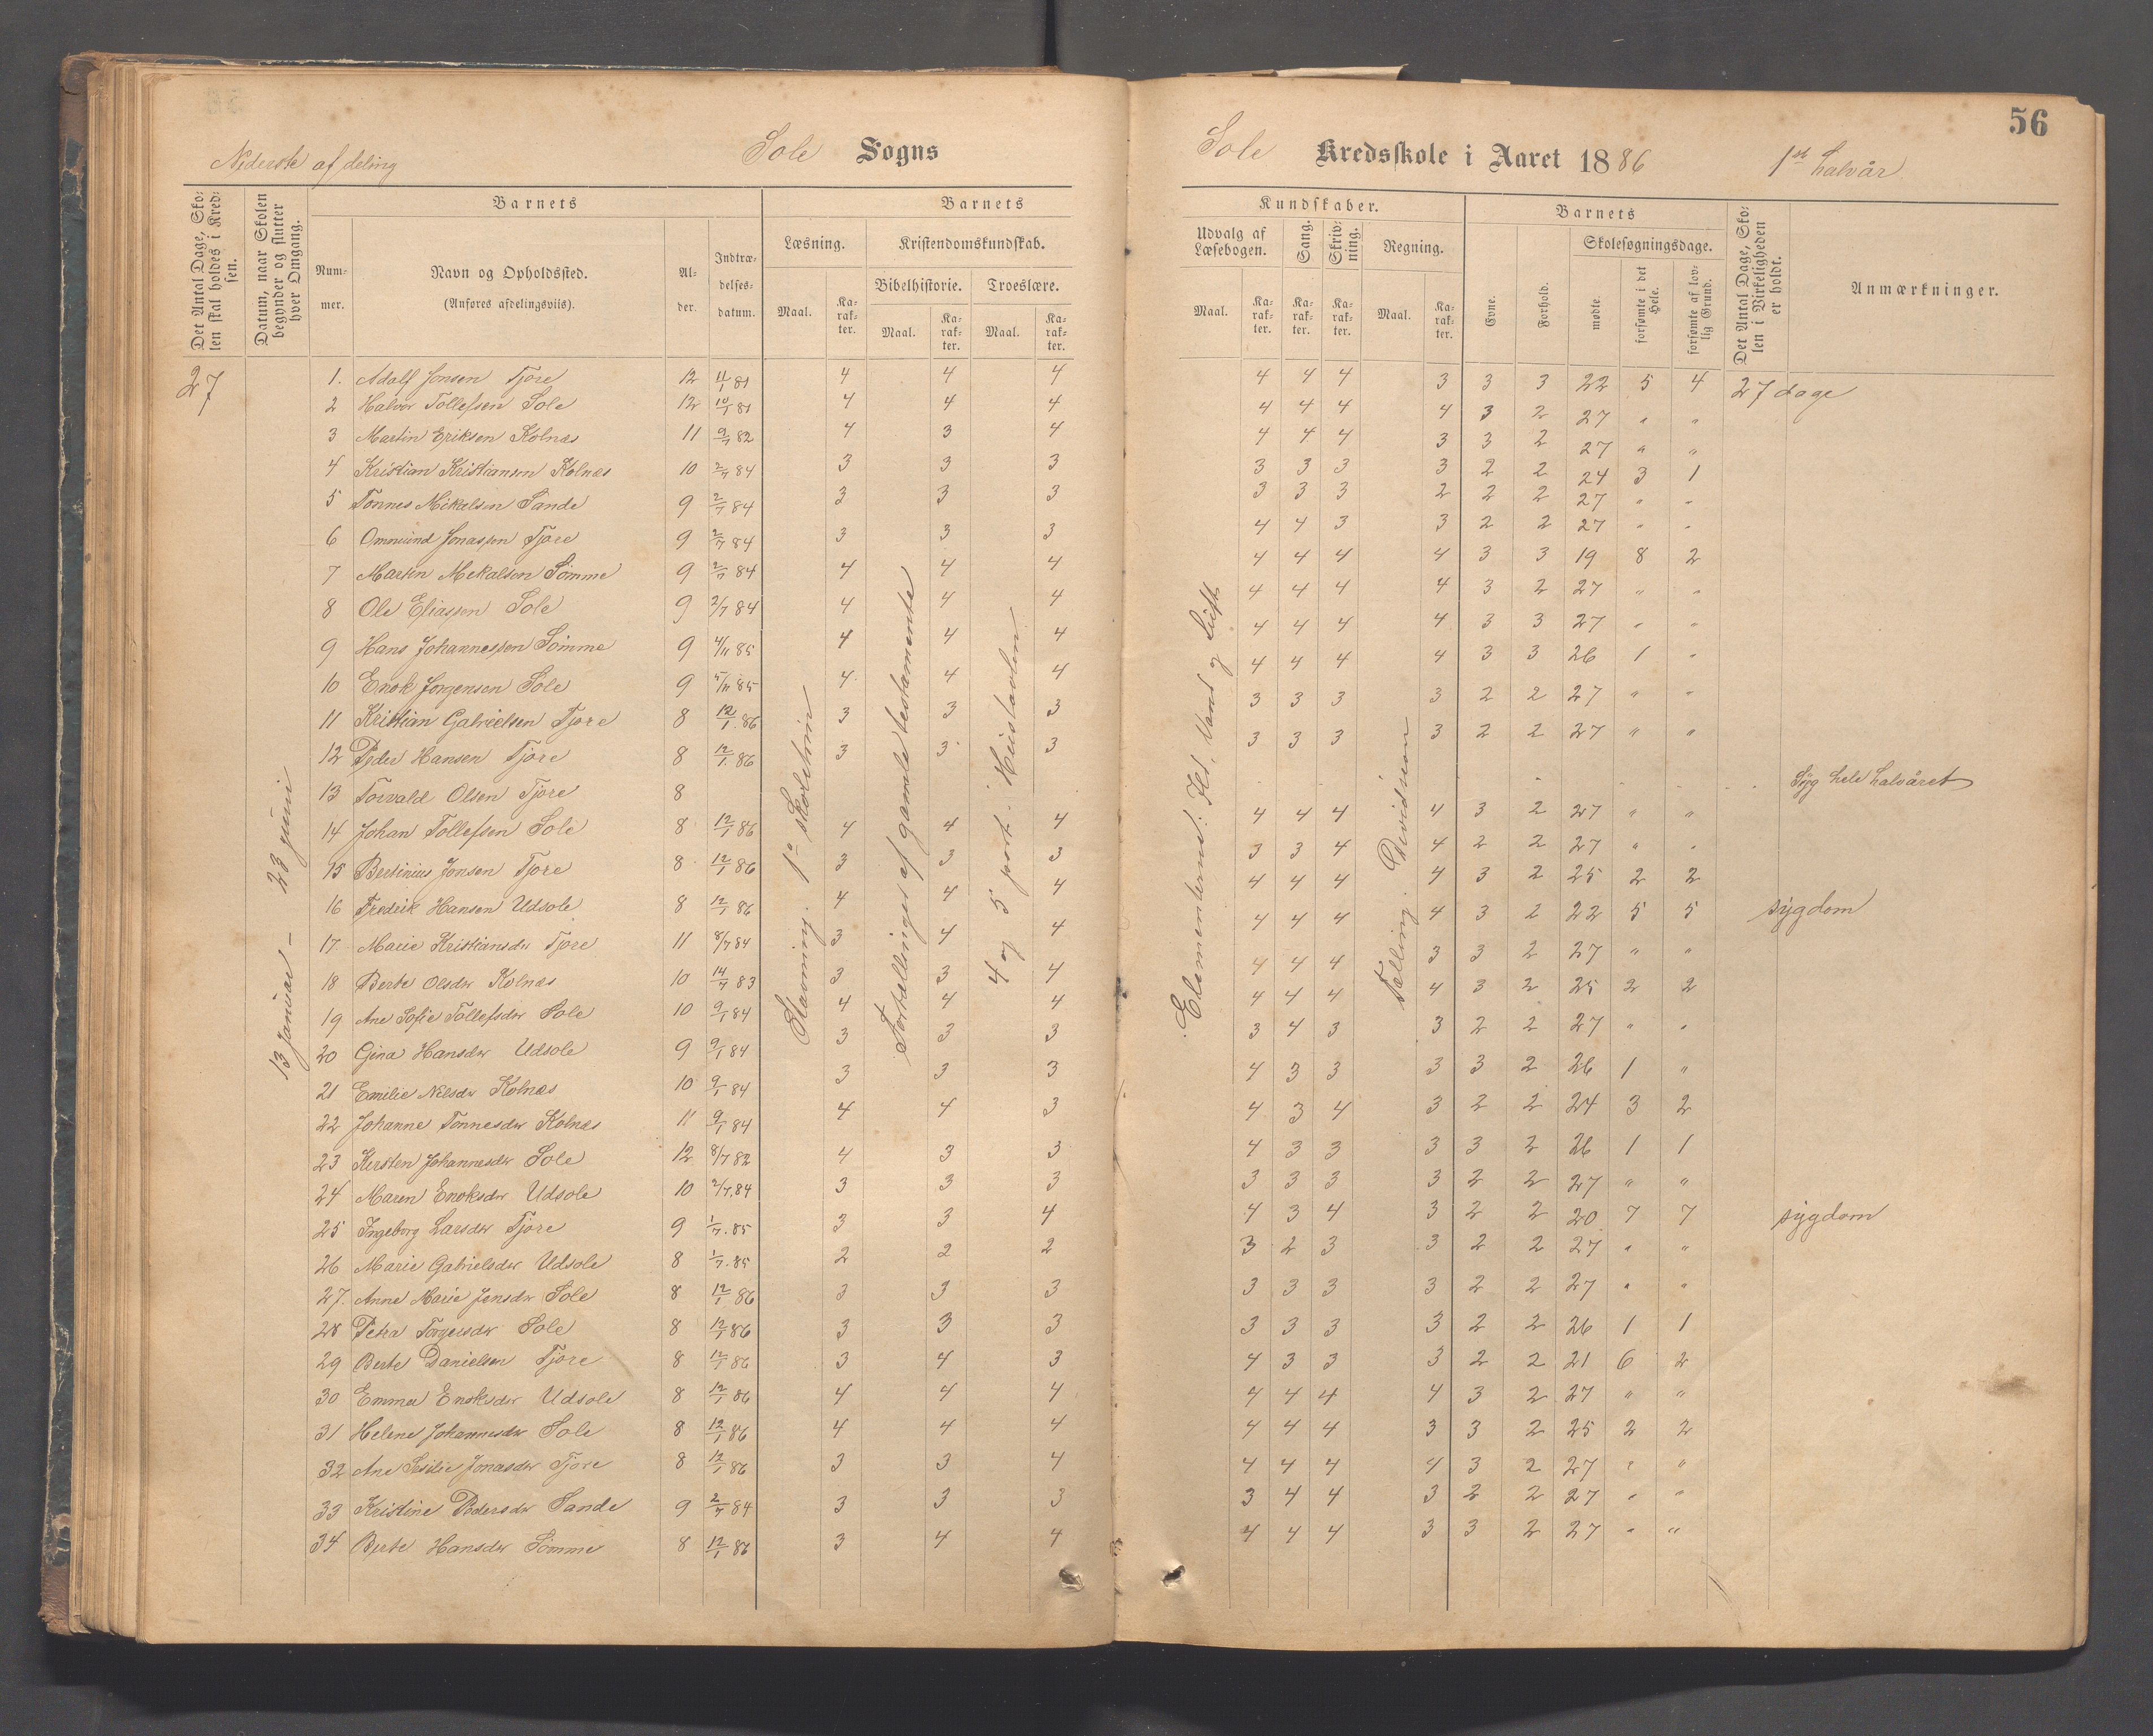 56
Nederste afdeling
Sole Sogns
Sole Kredsskole i Aaret 1886 1ste halvår
Det Antal Dage, Sko-
len skal holdes i Kred-
sen.
Datum, naar Skolen
begynder og slutter
hver Omgang.
Barnets
Num-
mer.
Navn og Opholdssted.
(Anføres afdelingsviis).
Al-
der.
Indtræ-
delses-
datum.
Barnets
Læsning.
Kristendomskundskab.
Bibelhistorie.
Troeslære.
Maal.
Ka-
rak-
ter.
Maal.
Ka-
rak-
ter.
Maal.
Ka-
rak-
ter.
Kundskaber.
Udvalg af
Læsebogen.
Sang.
Skriv-
ning.
Regning.
Maal.
Ka-
rak-
ter.
Ka-
rak-
ter.
Ka-
rak-
ter.
Maal.
Ka-
rak-
ter.
Barnets
Evne.
Forhold.
Skolesøgningsdage.
mødte.
forsømte i det
Hele.
forsømte af lov-
lig Grund.
Det Antal Dage, Sko-
len i Virkeligheden
er holdt.
Anmærkninger.
27
13 Januar – 23 juni
Stavning. 1ª Skoletrin
Fortællinger af gamle testamente
4 og 5 part. Huustavlen
Elementerne: Ild, Vand og Luft
Tælling. Devidsion
1. Adolf Jonsen Tjore 12 11/1 81 4 4 4 4 4 4 3 3 3 22 5 4 27 dage
2 Halvor Tollefsen Sole 12 10/1 81 4 4 4 4 4 4 4 3 2 27 " "
3 Martin Eriksen Kolnæs 11 9/7 82 4 3 4 4 4 4 3 3 2 27 " "
4 Kristian Kristiansen Kolnæs 10 2/7 84 3 3 3 3 3 3 3 2 2 24 3 1
5 Tønnes Mikalsen Sande 9 2/7 84 3 3 3 3 3 3 2 2 2 27 " "
6 Ommund Jonassen Tjore 9 2/7 84 3 3 3 4 4 3 3 2 2 27 " "
7 Martin Mekalsen Sømme 9 2/7 84 4 4 4 4 4 4 4 3 3 19 8 2
8 Ole Eliassen Sole 9 2/7 84 4 4 4 4 4 4 4 3 2 27 " "
9 Hans Johannessen Sømme 9 4/11 85 4 4 4 4 4 4 4 3 3 27 " "
10 Enok Jørgensen Sole 9 5/11 85 4 4 4 4 4 4 4 3 3 26 1 "
11 Kristian Gabrielsen Tjore 8 12/1 86 3 3 3 3 3 3 3 2 2 27 " "
12 Peder Hansen Tjore 8 12/1 86 3 3 3 3 3 3 3 2 2 27 " "
13 Torvald Olsen Tjore 8 Syg hele halvåret
14 Johan Tollefsen Sole 8 12/1 86 4 4 4 4 4 4 4 3 2 27 " "
15 Bertinius Jonsen Tjore 8 12/1 86 3 3 3 3 3 4 4 2 2 27 " "
16 Fredrik Hansen Udsole 8 12/1 86 4 4 4 4 4 4 4 3 2 25 2 2
17. Marie Kristiansdtr Tjore 11 8/7 84 3 4 4 4 4 4 4 3 2 22 5 5 sygdom
18 Berte Olsdtr Kolnæs 10 14/7 83 3 3 4 4 4 4 3 3 2 27 " "
19 Ane Sofie Tollefsdtr Sole 10 9/1 84 4 4 4 4 4 4 4 3 2 25 2 2
20 Gina Hansdtr Udsole 9 9/1 84 3 3 3 3 4 3 3 2 2 27 " "
21 Emilie Nilsdtr Kolnæs 10 9/1 84 3 3 3 4 3 3 3 3 2 26 1 "
22 Johanne Tønnesdtr Kolnæs 11 9/1 84 4 4 3 4 3 4 3 2 2 24 3 2
23 Kersten Johannesdtr Sole 12 8/7 82 4 3 3 4 3 3 3 3 2 26 1 1
24 Maren Enoksdtr Udsole 10 2/7 84 3 3 3 3 3 3 3 2 2 27 " "
25 Ingeborg Larsdtr Tjore 9 1/7 85 3 3 4 4 3 4 3 2 2 20 7 7 sygdom
26 Marie Gabrielsdtr Udsole 8 1/7 85 2 2 2 3 2 3 3 2 2 27 " "
27. Anne Marie Jensdtr Sole 8 12/1 86 3 3 3 3 3 3 3 2 2 27 " "
28 Petra Torgersdtr Sole 8 12/1 86 3 3 3 3 3 3 3 2 2 26 1 1
29 Berte Danielsen Tjore 8 12/1 86 3 4 3 4 3 3 3 2 2 21 6 2
30 Emma Enoksdtr Udsole 8 12/1 86 4 4 4 4 4 4 4 3 2 27 " "
31 Helene Johannesdtr Sole 8 12/1 86 4 4 4 4 4 4 3 3 2 25 2 2
32 Ane Sesilie Jonasdtr Tjore 8 12/1 86 3 3 4 4 4 4 4 3 2 27 " "
33 Kristine Pedersdtr Sande 9 2/7 84 3 3 3 3 4 4 3 2 2 27 " "
34 Berte Hansdtr Sømme 8 12/1 86 3 4 4 4 4 4 3 3 2 27 " "